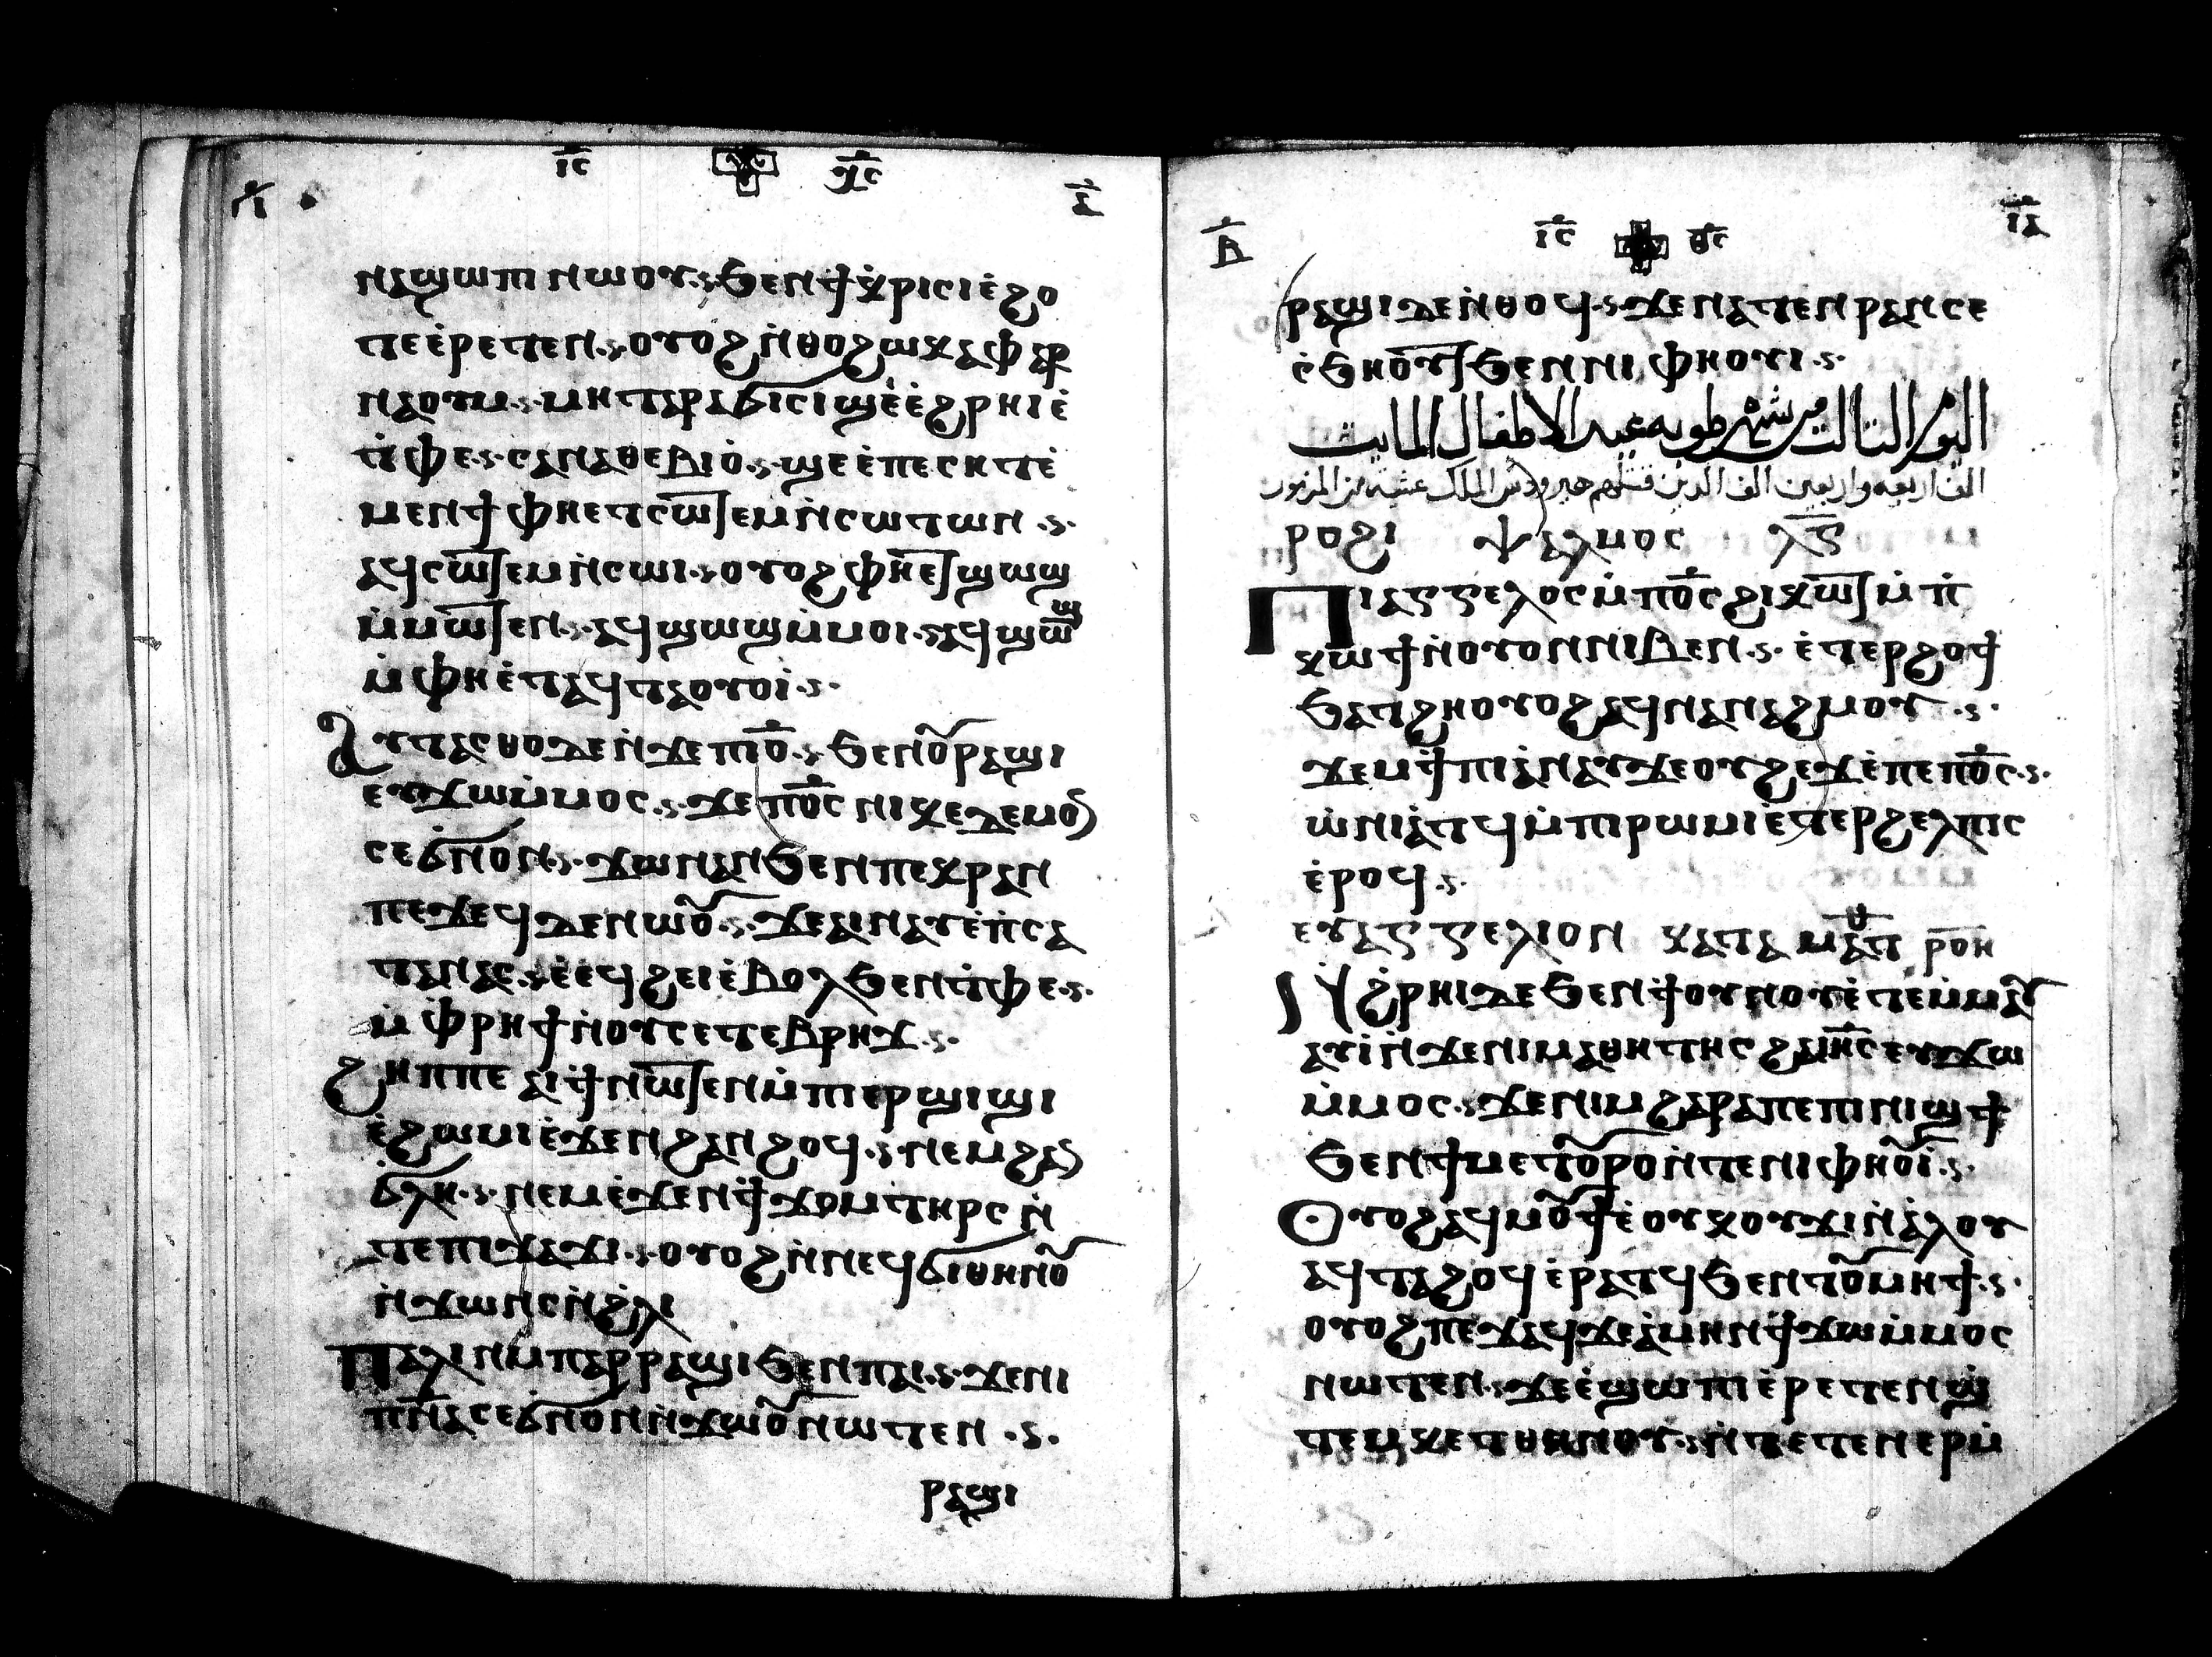 ⲓ̅ⲥ̅ ⲭ̅ⲥ̅
ⲛⲁϣⲱⲡⲓ ⲛⲱⲟⲩ·ⲋ ϧⲉⲛϯⲕ̀ⲣⲓⲥⲓⲉ̀ϩⲟ
ⲧⲉⲉ̀ⲣⲉⲧⲉⲛ·ⲋ·ⲟⲩⲟϩⲛ̀ⲑⲟϩⲱⲕⲁⲫⲁⲣ
ⲛⲁⲟⲩⲙ·ⲋ·ⲙⲏⲧⲉⲣⲁϭⲓⲥⲓϣⲉ̀ⲉ̀ϩⲣⲏⲓⲉ̀
ⲧ̀ⲫⲉ·ⲋ·ⲥⲁⲛⲁⲑⲉⲃⲓⲟ̀·ⲋ·ϣⲉⲉ̀ⲡⲉⲥⲏⲧⲉ̀
ⲙⲉⲛϯ ⲫⲏⲉⲧⲥⲱ̅ⲧⲉⲙⲛ̀ⲥⲱⲧⲱⲛ ·ⲋ·
ⲁϥⲥⲱ̅ⲧⲉⲙⲛ̀ⲥⲱⲓ·ⲋ·ⲟⲩⲟϩ ⲫⲏⲉ̅ⲧϣⲱϣ
ⲙ̀ⲙⲱ̅ⲧⲉⲛ·ⲋ·ⲁϥϣⲱϣⲙ̀ⲙⲟⲓ·ⲋ·ⲁϥϣⲱϣ
ⲙ̀ⲫⲏⲉ̀ⲧⲁϥⲧⲁⲟⲩⲟⲓ̀·ⲋ·
ⲁⲩⲧⲁⲥⲑⲟⲇⲉⲛ̀ϫⲉⲡⲓⲟ̅·ⲋ·ϧⲉⲛⲟ̅ⲣⲁϣⲓ
ⲉⲩϫⲱⲙ̀ⲙⲟⲥ·ⲋ·ϫⲉⲡⲟ̅ⲥ̅ ⲛⲓⲕⲉⲇⲉⲙⲟ
ⲥⲉϭ̀ⲛⲟⲛ·ⲋ·ϫⲱⲛⲁⲛϧⲉⲛⲡⲉⲕⲣⲁⲛ
ⲡⲉϫⲉϥⲇⲉⲛⲱⲟ̅·ⲋ·ϫⲉⲁⲓⲛⲁⲩⲉ̀ⲡ̀ⲥⲁ
ⲧⲁⲛⲁⲥ·ⲋ·ⲉ̀ⲉϥϩⲉⲓⲉ̀ⲃⲟⲗϧⲉⲛⲧ̀ⲫⲉ·ⲋ·
ⲙ̀ⲫⲣⲏϯⲛ̀ⲟⲩⲥⲉⲧⲉⲃⲣⲏϫ·ⲋ·
ϩⲏⲡⲡⲉ ⲁⲓϯⲛⲱ̅ⲧⲉⲛⲙ̀ⲡⲓⲉⲣϣⲓϣⲓ
ⲉ̀ϩⲱⲙⲓⲉ̀ϫⲉⲛϩⲁⲛϩⲟϥ·ⲋ·ⲛⲉⲙϩⲁ
ϭ̀ⲗⲏ·ⲋ·ⲛⲉⲙⲉ̀ϫⲉⲛϯϫⲟⲙⲧⲏⲣⲥ ⲛ̀
ⲧⲉⲡⲓϫⲁϫⲓ·ⲋ·ⲟⲩⲟϩⲛ̀ⲛⲉϥϭⲓⲑⲏⲛⲟ̅
ⲛ̀ϫⲱⲛⲥⲛ̀ϩ̀ⲗⲓ
ⲡⲁⲗⲓⲛⲙⲡⲁⲣⲣⲁϣⲓϧⲉⲛⲡⲁⲓ·ⲋ·ϫⲉⲛⲓ
ⲡⲛ̅ⲁⲥⲉϭ̀ⲛⲟⲛⲛ̀ϫⲱⲟ̅ⲛⲱⲧⲉⲛ ·ⲋ·
ⲣⲁϣⲓ
ⲃ̅ ⲓ̅ⲥ̅ ⲑ̅ⲥ̅ ⲓ̅ⲁ̅
ⲣⲁϣⲓⲇⲉⲛ̀ⲑⲟϥ·ⲋ·ϫⲉⲛⲁⲧⲉⲛⲣⲁⲛⲥⲉ
ⲥ̀ϧⲏⲟⲩ̅ⲧϧⲉⲛⲛⲓ ⲫⲏⲟⲩⲓ·ⲋ·
اليوم التالت من شهر طوبه عيد الاطفال المايت
الف اربعه واربعين الف الدين قتلهم هيرودس الملك عشيه من المزمور
ⲣⲟϩⲓ ⲯⲁⲗⲙⲟⲥ ⲗ̅ⲋ̅
ⲡⲓⲁⲅⲅⲉⲗⲟⲥⲙ̀ⲡⲟ̅ⲥ̅ϩⲓⲕⲱ̅ⲧⲙ̀ⲡ̀
ⲕⲱϯⲛ̀ⲟⲩⲟⲛⲛⲓⲃⲉⲛ·ⲋ·ⲉ̀ⲧⲉⲣϩⲟϯ
ϧⲁⲧϩⲏⲟⲩⲟϩⲁϥⲛⲁⲛⲁϩⲙⲟⲩ·ⲋ·
ϫⲉⲙϯⲡⲓⲁ̀ⲛⲁⲩϫⲉⲟⲩϩⲉϫⲉ̀ⲡⲉⲡⲟ̅ⲥ̅·ⲋ·
ⲱ̀ⲛⲓⲁ̀ⲧϥⲙ̀ⲡⲓⲣⲱⲙⲓⲉ̀ⲧⲉⲣϩⲉⲗⲡⲓⲥ
ⲉ̀ⲣⲟϥ·ⲋ·
ⲉⲩⲁⲅⲅⲉⲗⲓⲟⲛ ⲕⲁⲧⲁ ⲙⲁⲧⲑ ⲣⲟ̅ⲏ̅
ⲛ̀ϩ̀ⲣⲏⲓⲇⲉϧⲉⲛϯⲟⲩⲛⲟⲩⲉ̀ⲧⲉⲙ̀ⲙⲁⲩ
ⲁⲩⲓ̀ⲛ̀ϫⲉⲛⲓⲙⲁⲑⲏⲧⲏⲥ ϩⲁⲓⲏ̅ⲥ̅ⲉⲩϫⲱ
ⲙ̀ⲙⲟⲥ·ⲋ·ϫⲉⲛⲓⲙϩⲁⲣⲁⲡⲉⲡⲓⲛⲓϣϯ
ϧⲉⲛϯⲙⲉⲧⲟ̅ⲣⲟⲛ̀ⲧⲉⲛⲓⲫⲏⲟ̅ⲓ·ⲋ·
ⲟⲩⲟϩⲁϥⲙⲟ̅ϯⲉ̀ⲟⲩⲕⲟⲩϫⲓⲛ̀ⲁ̀ⲗⲟⲩ
ⲁϥⲧⲁϩⲟϥⲉ̀ⲣⲁⲧϥϧⲉⲛⲧⲟ̅ⲙⲏϯ·ⲋ·
ⲟⲩⲟϩⲡⲉϫⲁϥϫⲉⲁ̀ⲙⲏⲛϯϫⲱⲙ̀ⲙⲟⲥ
ⲛⲱⲧⲉⲛ·ⲋ·ϫⲉⲉ̀ϣⲱⲡⲓⲉ̀ⲣⲉⲧⲉⲛϣ
ⲧⲉⲙⲕⲉⲧⲑⲏⲛⲟⲩ·ⲋ·ⲛ̀ⲧⲉⲧⲉⲛⲉⲣⲙ̀